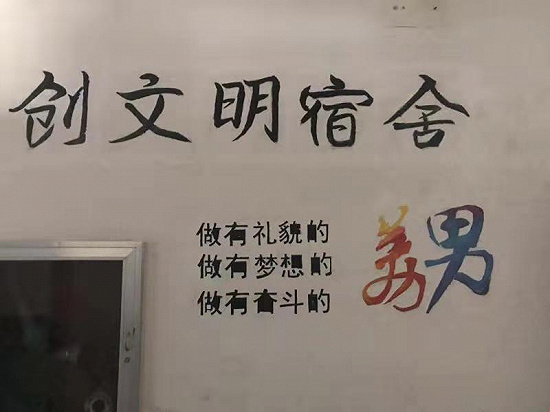 创文明宿舍
做有礼貌的
做有梦想的
做有奋斗的
美男